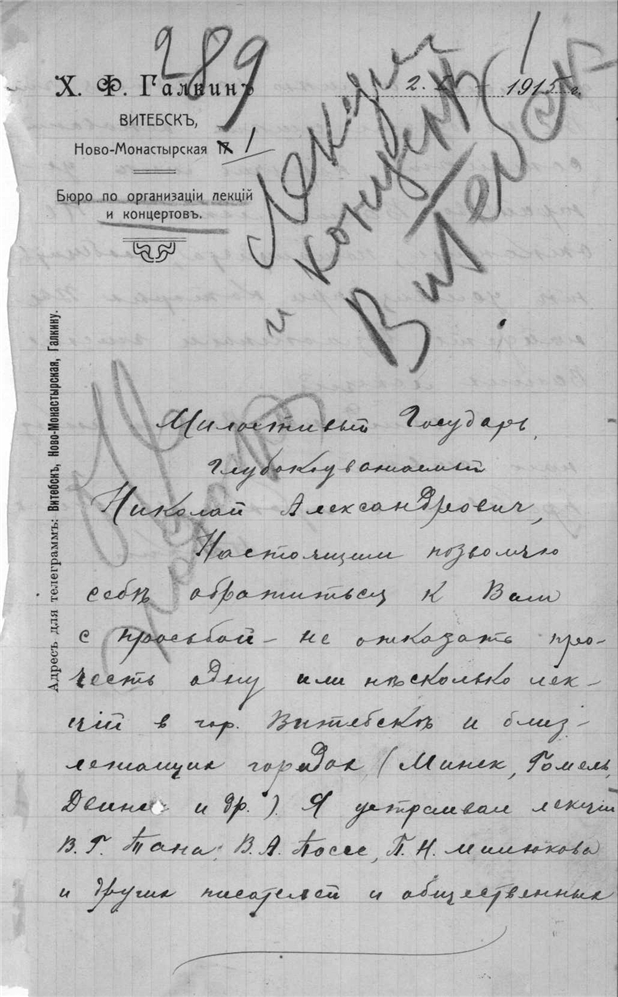 289
Х. Ф. Галкинъ
ВИТЕБСКЪ,
Ново-Монастырская 1
Бюро по организаціи лекцій
и концертовъ.
2. 1915 г.
Лекции
и концерты
Витебск
Адресъ для телеграммъ: Витебскъ, Ново-Монастырская, Галкину.
Милостивый Государь,
глубокоуважаемый
Николай Александрович,
Настоящим позволяю
себѣ обратиться к Вам
с просьбой – не отказать про-
честь одну или нѣсколько лек-
ций в гор. Витебскѣ и близ-
лежащих городах (Минск, Гомель,
Двинск и др.). Я устраивал лекции
В. Г. Тана, В. А. Поссе, П. Н. Милюкова
и других писателей и общественных